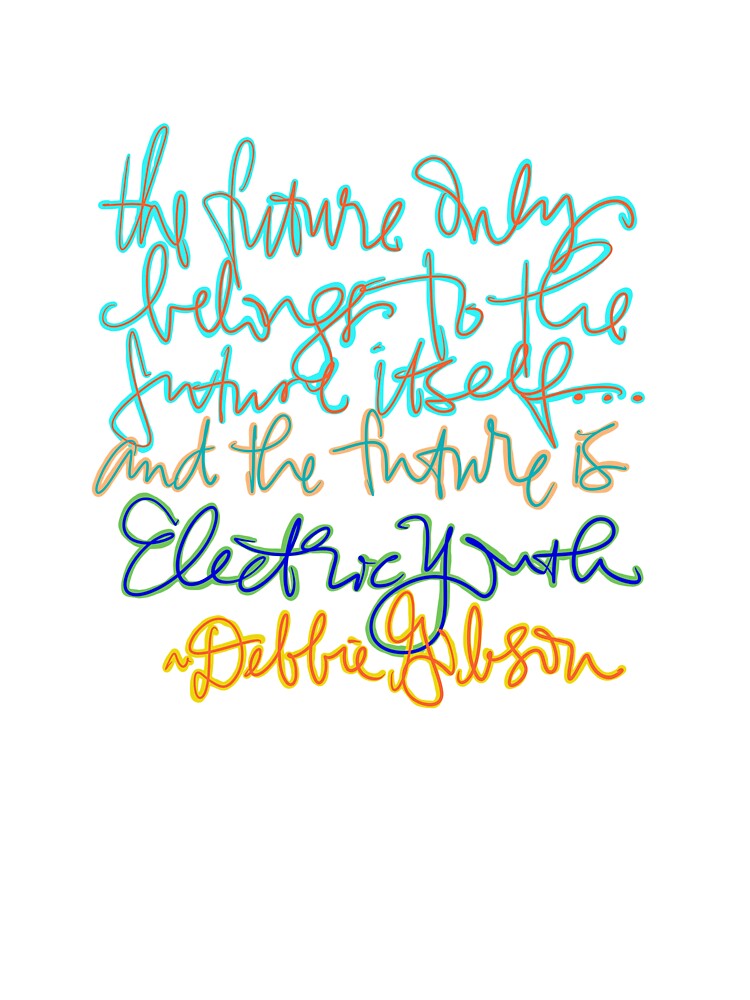 the future only
belongs to the
future itself...
and the future is
Electric Youth
~Debbie Gibson